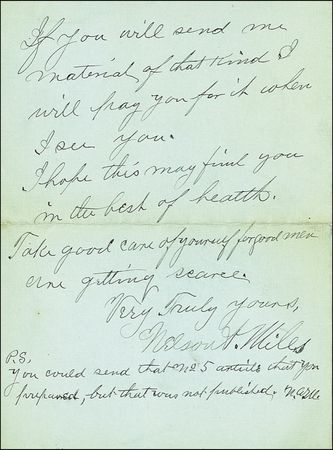 If you will send me
material of that kind I
will pay you for it when
I see you.
I hope this may find you
in the best of health.
Take good care of yourself for good men
are gitting scarce.
Very Truly yours,
Nelson A. Miles
P.S.
You could send that No 5 article that you
prepared, but that was not published.